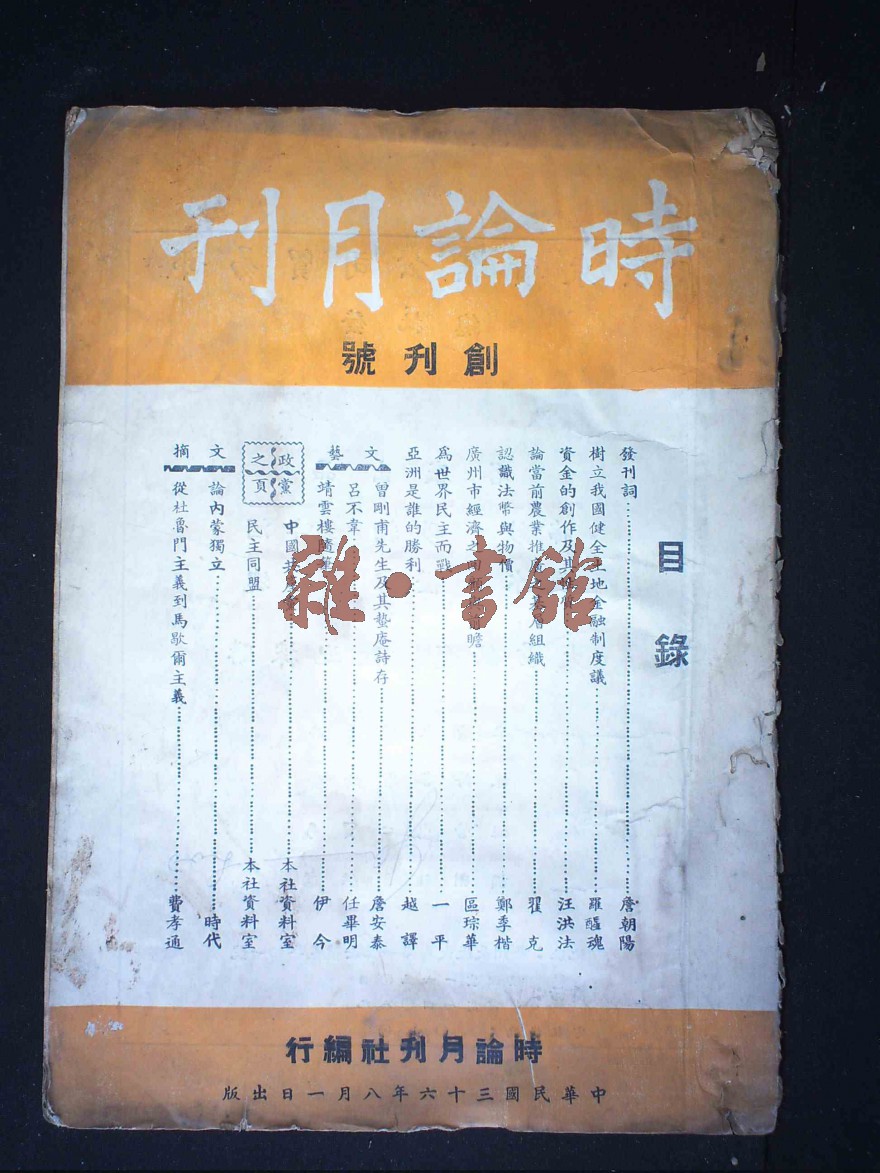 時論月刊
創刊號
目錄
發刊詞 詹朝陽
樹立我國健全土地金融制度議 羅醞魂
資金的創作及其 汪洪法
論當前農業推廣 基層組織 翟克
認識法幣與物價 鄭季楷
廣州市經濟之回 瞻 區琮華
為世界民主而戰 一平
亞洲是誰的勝利 越譯
文藝
曾剛甫先生及其蟄庵詩存 詹安泰
呂不韋 任畢明
靖雲樓隨筆 伊今
政黨之頁
中國 本社資料室
民主同盟 本社資料室
文摘
論內蒙獨立 時代
從杜魯門主義到馬歇爾主義 費孝通
時論月刊社編行
中華民國三十六年八月一日出版
雜·書館